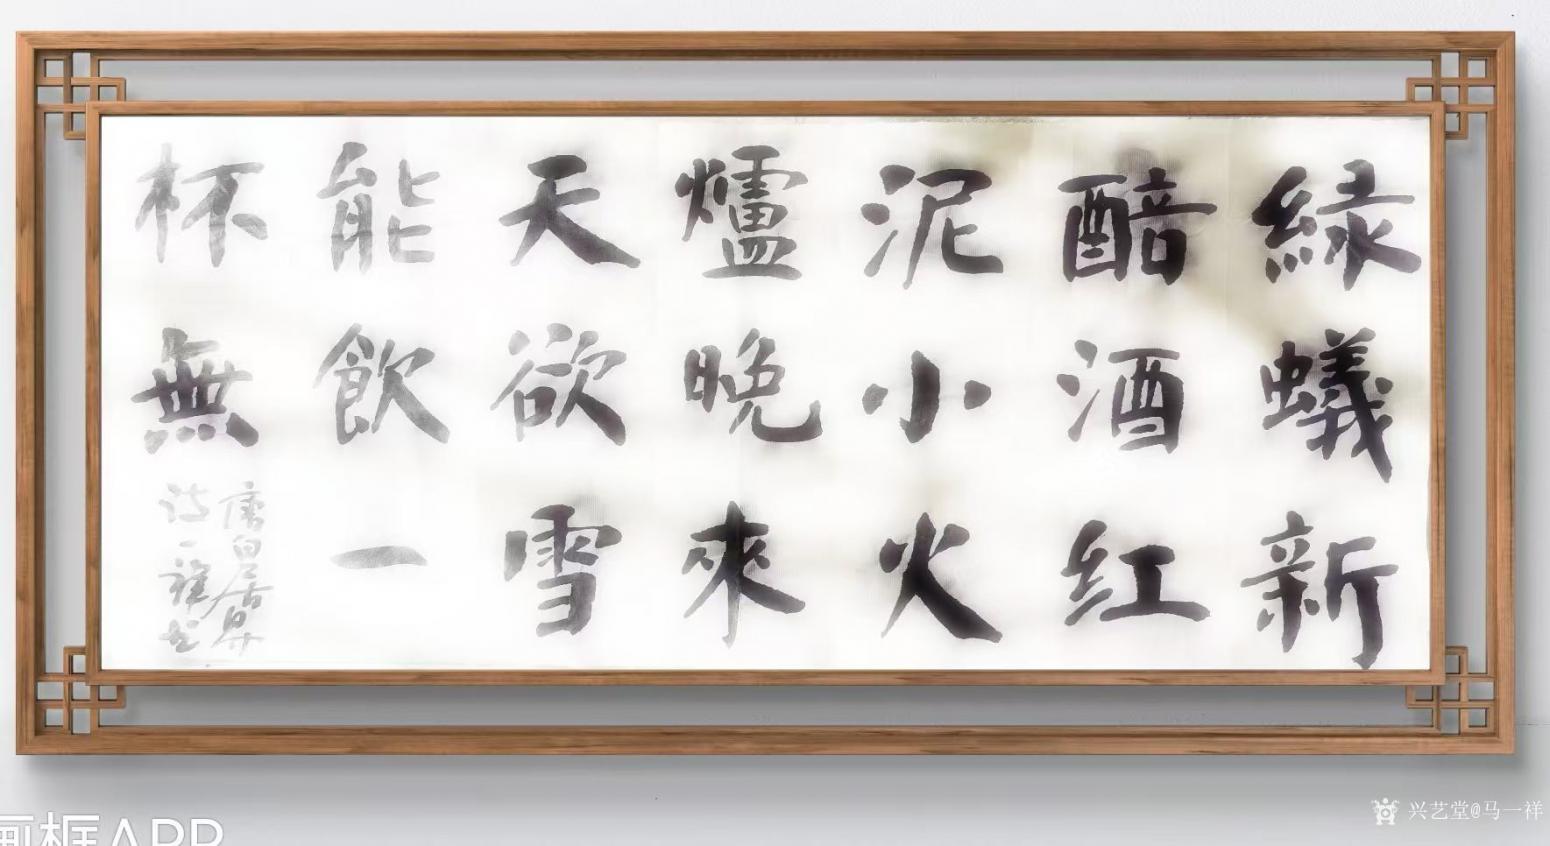 緑蟻新
醅酒红
泥小火
爐晚來
天欲雪
能飲一
杯無
唐白居易
诗一祥书
兴艺堂@马一祥
画框APP